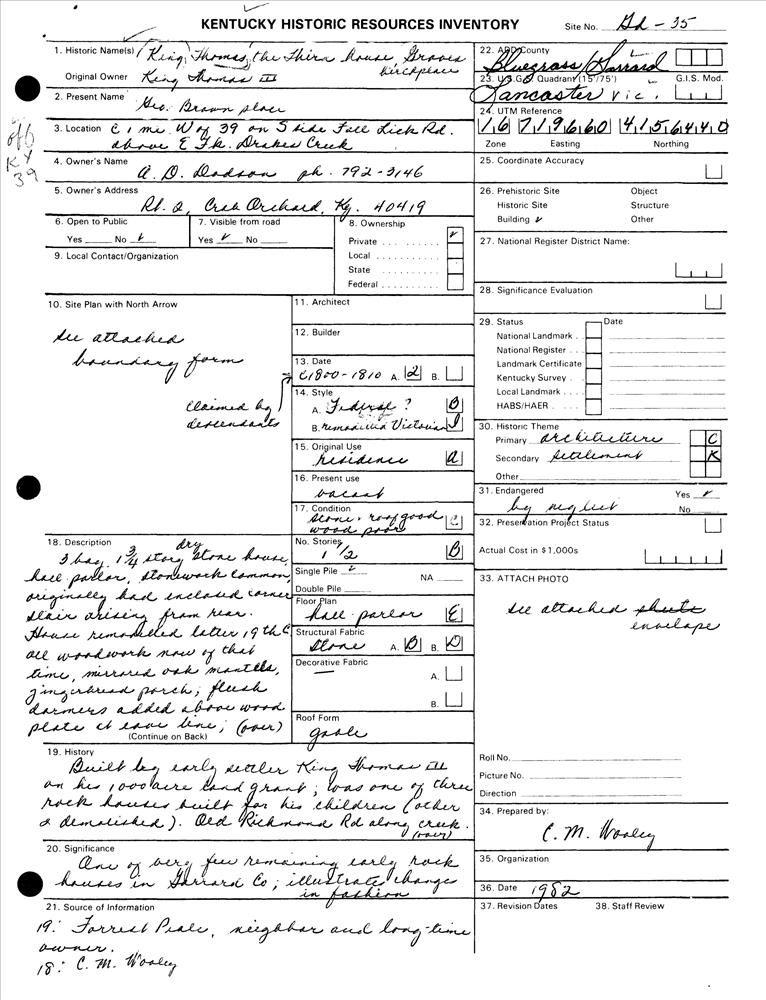 KENTUCKY HISTORIC RESOURCES INVENTORY
Site No. Gd - 35
1. Historic Name(s) King, Thomas, the Third house, Graves birthplace
Original Owner King Thomas III
2. Present Name Geo. Brown place
off
KY
39
3. Location C 1 mi. W of 39 on S side Fall Lick Rd.
above E Fk. Drakes Creek
4. Owner's Name
A. D. Dodson ph. 792-3146
5. Owner's Address
Rt. 2, Crab Orchard, Ky. 40419
6. Open to Public
Yes No ✓
7. Visible from road
Yes ✓ No
8. Ownership
Private ✓
Local
State
Federal
9. Local Contact/Organization
10. Site Plan with North Arrow
see attached
boundary form
claimed by
descendants
11. Architect
12. Builder
13. Date
C1800-1810 A. 2 B.
14. Style
A. Federal ? B
B. remodeled Victorian I
15. Original Use
residence A
16. Present use
vacant
17. Condition
stone, roof good C
wood poor
18. Description
3 bay, 1 3/4 story dry stone house,
hall parlor, stonework common,
originally had enclosed corner
stair arising from rear.
House remodelled latter 19th C.
all woodwork now of that
time, mirrored oak mantels,
gingerbread porch; flush
dormers added above wood
plate at eave line; (over)
(Continue on Back)
No. Stories
1 1/2 B
Single Pile ✓
NA
Double Pile
Floor Plan
hall parlor E
Structural Fabric
Stone A. B B. D
Decorative Fabric
—
A.
B.
Roof Form
gable
19. History
Built by early settler King Thomas III
on his 1000 acre land grant; was one of three
rock houses built for his children (other
2 demolished). Old Richmond Rd along creek.
(over)
20. Significance
One of very few remaining early rock
houses in Garrard Co; illustrates change
in fashion
21. Source of Information
19: Forrest Peale, neighbor and long-time
owner.
18: C. M. Wooley
22. ADD/County
Bluegrass/Garrard
23. U.S.G.S Quadrant (15'/75') G.I.S. Mod.
Lancaster vic.
24. UTM Reference
16 719660 4156440
Zone Easting Northing
25. Coordinate Accuracy
26. Prehistoric Site Object
Historic Site Structure
Building ✓ Other
27. National Register District Name:
28. Significance Evaluation
29. Status Date
National Landmark
National Register
Landmark Certificate
Kentucky Survey
Local Landmark
HABS/HAER
30. Historic Theme
Primary architecture C
Secondary settlement K
Other
31. Endangered Yes ✓
by neglect No
32. Preservation Project Status
Actual Cost in $1,000s
33. ATTACH PHOTO
see attached
envelope
Roll No.
Picture No.
Direction
34. Prepared by:
C. M. Wooley
35. Organization
36. Date 1982
37. Revision Dates 38. Staff Review